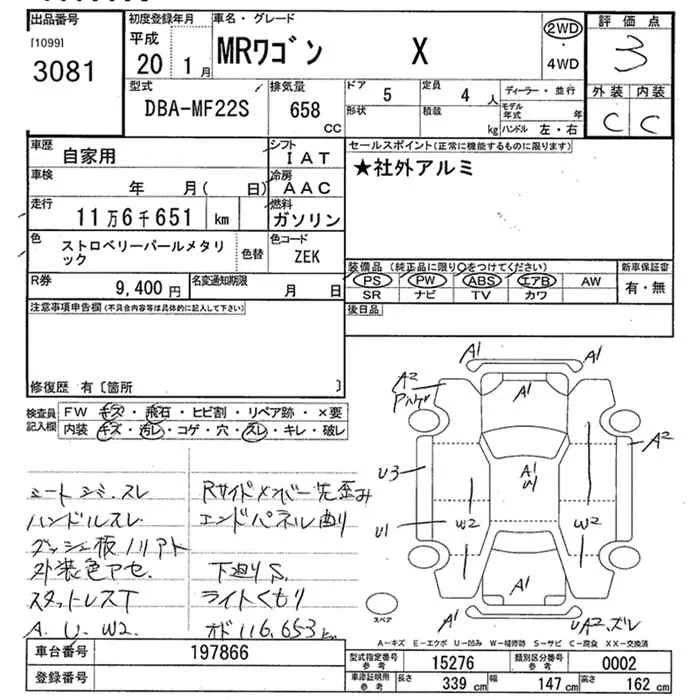 出品番号
[1099]
3081
初度登録年月
平成
20 1月
車名・グレード
MRワゴン X
2WD
・
4WD
評価点
3
外装 内装
C C
型式
DBA-MF22S
排気量
658 CC
ドア 5
定員 4 人
形状
積載 kg
ディーラー・並行
モデル年式 年
ハンドル 左・右
車歴
自家用
シフト
IAT
車検
年 月( 日)
冷房
AAC
走行
11万6千651 km
燃料
ガソリン
色
ストロベリーパールメタリック
色替
色コード
ZEK
R券
9,400円
名変通知期限
月 日
セールスポイント(正常に機能するものに限ります)
★社外アルミ
装備品 (純正品に限り○をつけてください)
新車保証書
PS PW ABS エアB AW
SR ナビ TV カワ
有・無
後日品
注意事項申告欄(不具合内容等は具体的に記入して下さい)
修復歴 有〔箇所 〕
検査員記入欄
FW キズ・飛石・ヒビ割・リペア跡・×要
内装 キズ・汚レ・コゲ・穴・スレ・キレ・破レ
シートシミ.スレ
ハンドルスレ
ダッシュ板ノリアト
外装色アセ.
スタットレスT
A. U. W2.
Rサイドメンバー先歪み
エンドパネル曲り
下廻りS.
ライトくもり
オド116,653k
A1 A1
A2
A1
A2
U3
A1
W
U1
W2 W2
A1
A1
UA2.ズレ
スペア
A－キズ E－エクボ U－凹み W－補修跡 S－サビ C－腐食 XX－交換済
車台番号 197866
登録番号
型式指定番号 参考 15276
類別区分番号 参考 0002
車庫証明用 参考
長さ 339 cm 幅 147 cm 高さ 162 cm